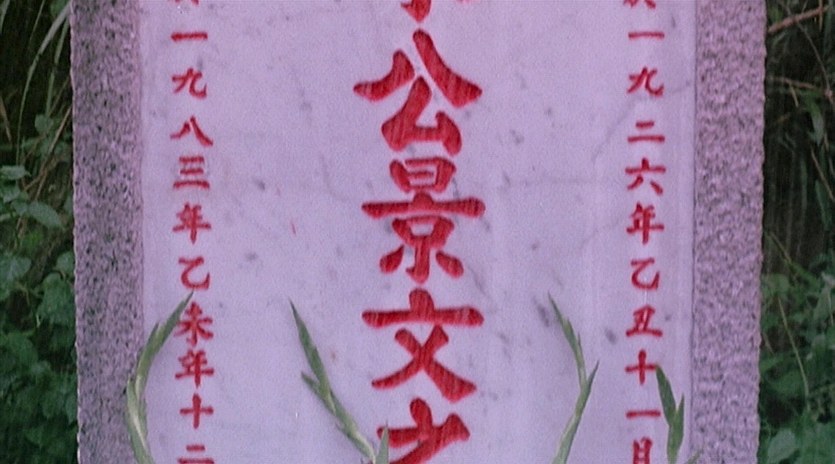 一九二六年乙丑十一月
公景文
一九八三年乙未年十二